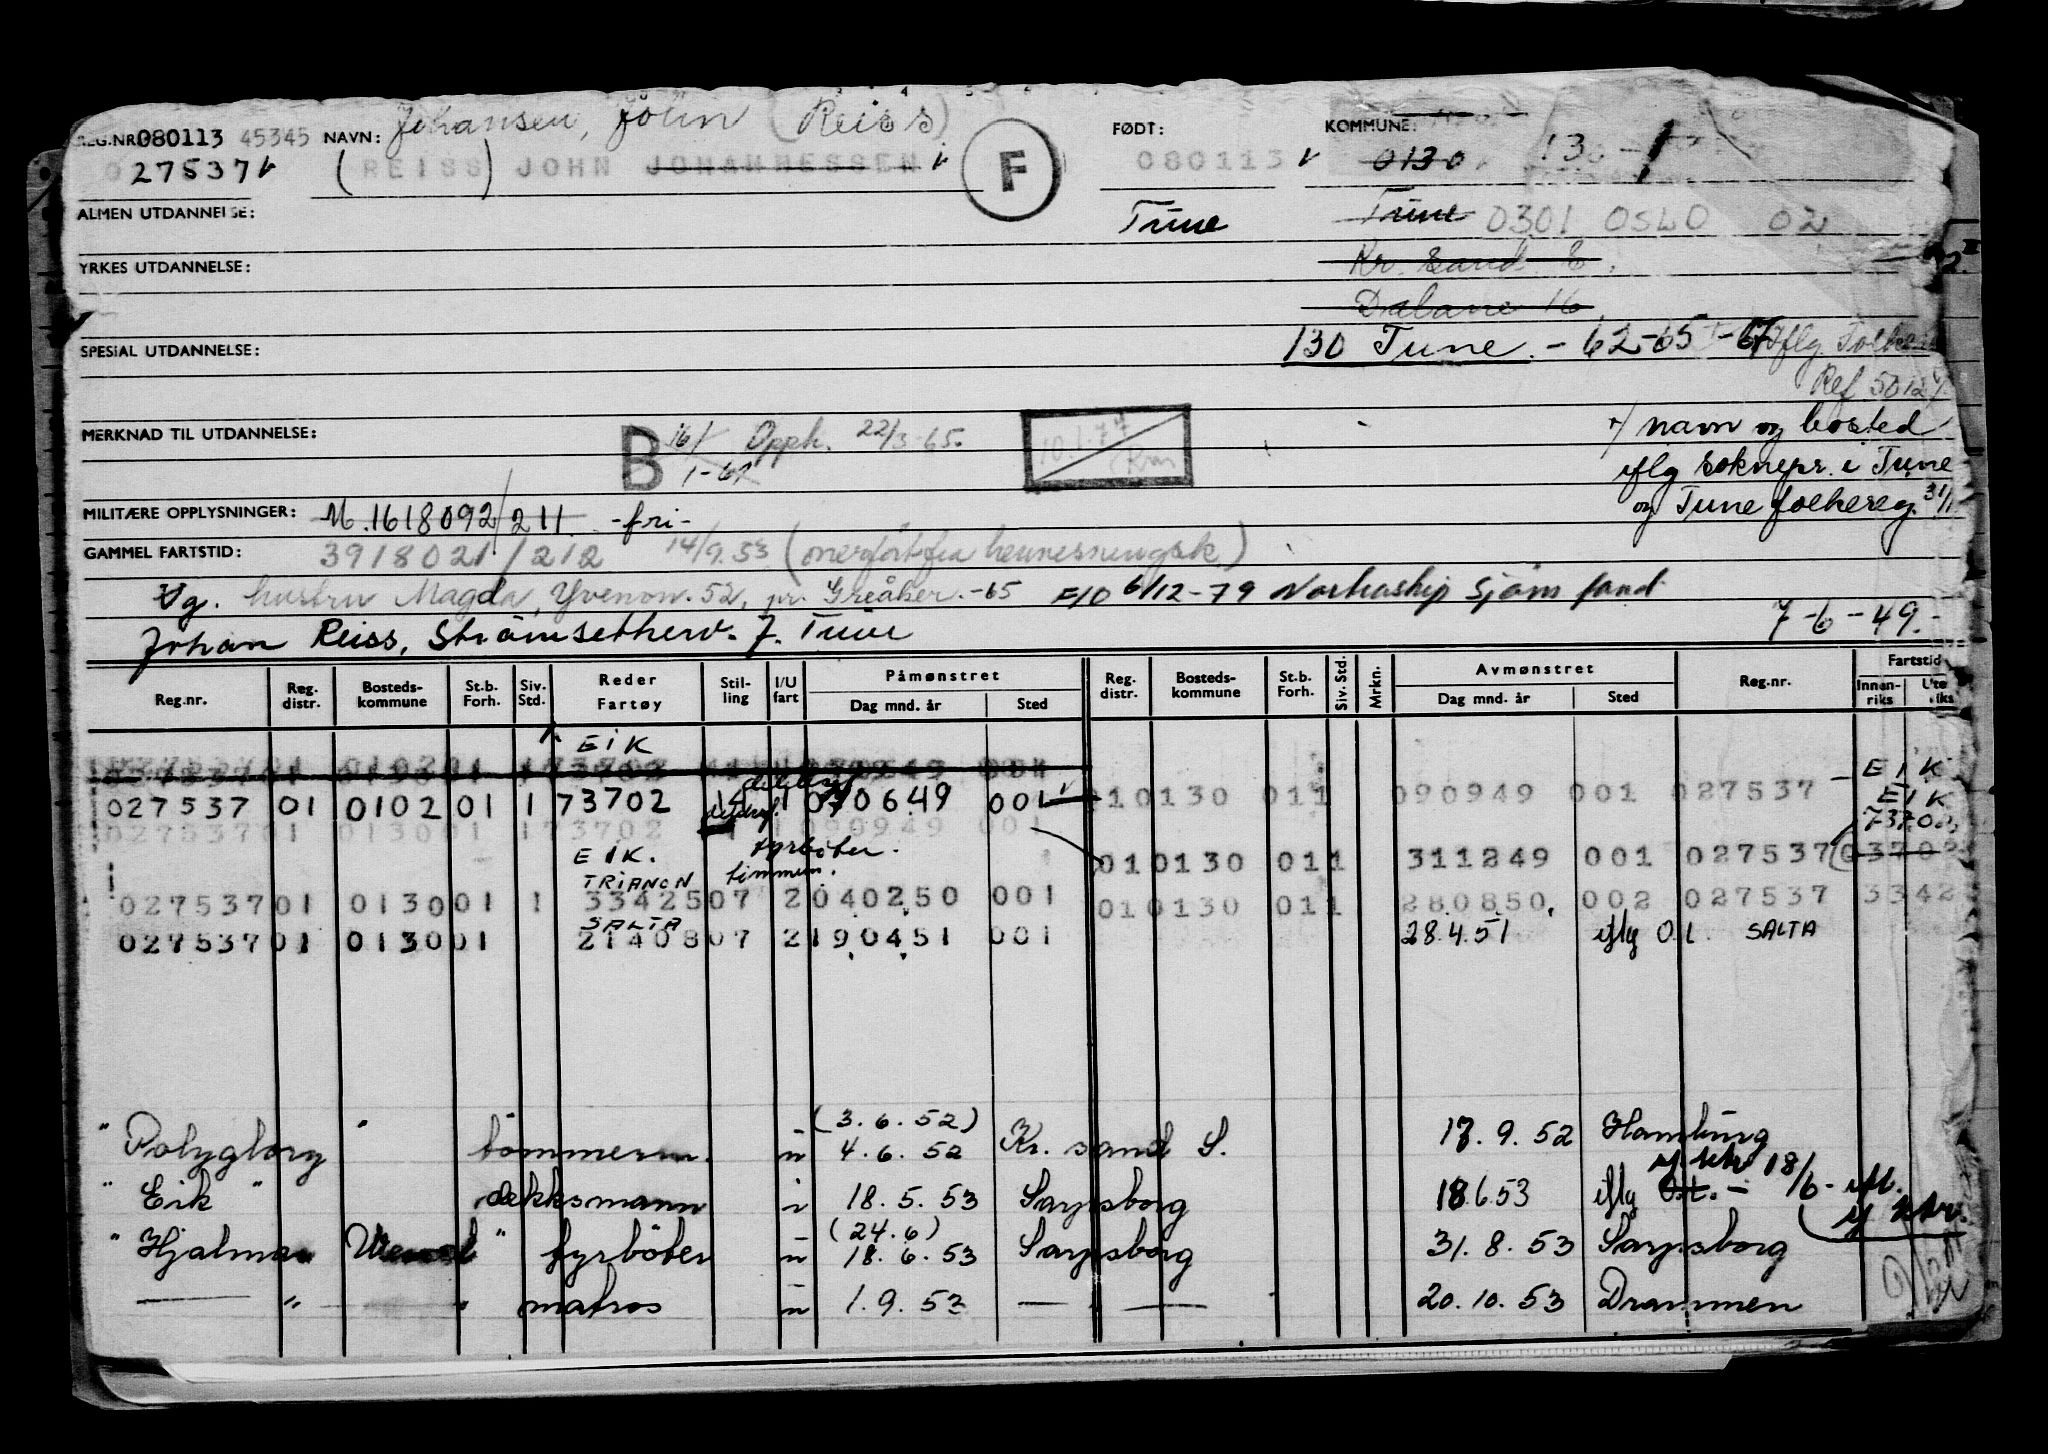 Johansen, John (Reiss)
REG.NR. 080113 45345 NAVN: FØDT: KOMMUNE:
027537 v (REISS) JOHN JOHANNESSEN v F 080113 v 0130
ALMEN UTDANNELSE: Tune Tune 0301 OSLO 02
YRKES UTDANNELSE: Kr. Sand S.
Dalane 16
SPESIAL UTDANNELSE: 130 Tune. - 62-65-67 iflg.
Ref 5012
MERKNAD TIL UTDANNELSE: B 16/1-61 Opph. 22/3-65. 10.1.77 navn og bosted
iflg soknepr. i Tune
MILITÆRE OPPLYSNINGER: M.1618092/211 -fri- og Tune folkereg. 31/1
GAMMEL FARTSTID: 3918021/212 14/9.53
Vg. hustru Magda, Yvenon. 52, pr. Greåker. -65 F/O 6/12-79 Norhaship Sjøm fond
Johan Reiss, Strømsetherv. 7. Tune 7-6-49.-
Reg.nr. Reg. distr. Bosteds-kommune St.b. Forh. Siv. Std. Reder Fartøy Stil-ling I/U fart Påmønstret Dag mnd. år Sted Reg. distr. Bosteds-kommune St.b. Forh. Siv. Std. Mrkn. Avmønstret Dag mnd. år Sted Reg.nr. Fartstid Innen-riks Uten riks
EIK EIK
027537 01 0102 01 1 73702 1 070649 001 v 010130 011 090949 001 027537 EIK
027537 01 0130 01 1 73702 1 090949 001 73702
EIK. fyrbøter. 010130 011 311249 001 027537 03702
TRIANON tømmerm.
027537 01 0130 01 1 33425 07 2 040250 001 010130 011 280850. 002 027537 3342
SALTA
027537 01 0130 01 21408 07 2 190451 001 28.4.51 iflg O.l. SALTA
(3.6.52)
" Polyglory " tømmerm. u 4.6.52 Kr. sand S. 17.9.52 Hamburg
" Eik " dekksmann i 18.5.53 Sarpsborg 18.6.53 iflg 18/6-
(24.6)
" Hjalmar Wessel " fyrbøter u 18.6.53 Sarpsborg 31.8.53 Sarpsborg
— " — " matros u 1.9.53 — " — 20.10.53 Drammen